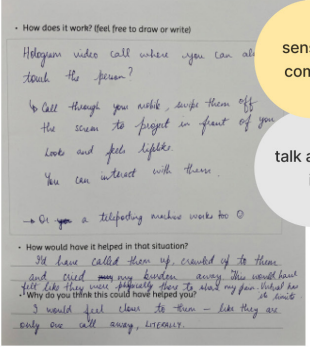 • How does it work? (feel free to draw or write)
Hologram video call where you can al
touch the person?
↳ Call through your mobile, swipe them off
the screen to project in front of you
Looks and feels lifelike.
You can interact with them.
→ Or a teleporting machine works too
• How would have it helped in that situation?
I'd have called them up, crawled up to them
and cried my burden away. This would have
felt like they were physically there to share my pain. Virtual has
its limits.
• Why do you think this could have helped you?
I would feel close to them – like they are
only one call away, LITERALLY.
sens
com
talk a